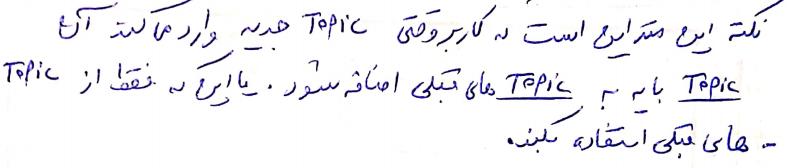 نکته این متد این است که کاربر وقتی Topic جدید وارد می‌کند آن
Topic باید به Topic های قبلی اضافه شود. یا این که فقط از Topic
- های قبلی استفاده بکند.